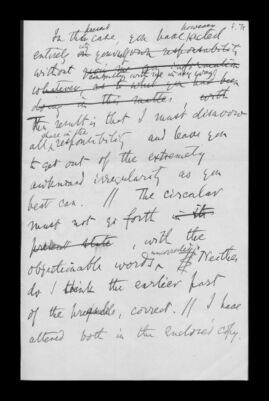 present however
In this case, you have acted
entirely on your own responsibility
without
consulting with me in any way
The result is that I must disavow
all responsibility and leave you
to get out of the extremely
awkward irregularity as you
best can. // The circular
must not go forth in its
present state, with the
objectionable words uncorrected. // Neither
do I think the earlier part
of the preamble, correct. // I have
altered both in the enclosed copy.